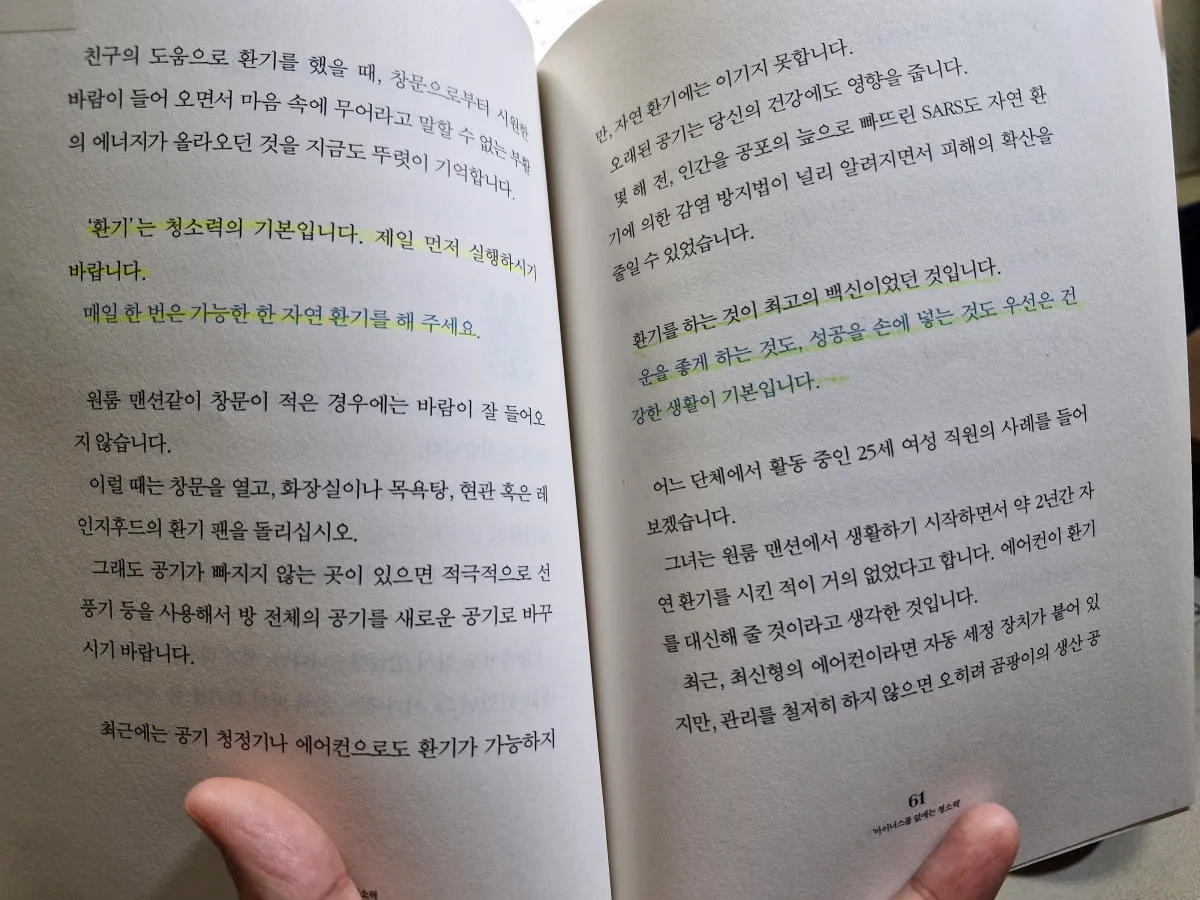 친구의 도움으로 환기를 했을 때, 창문으로부터 시원한
바람이 들어 오면서 마음 속에 무어라고 말할 수 없는 부활
의 에너지가 올라오던 것을 지금도 뚜렷이 기억합니다.
‘환기’는 청소력의 기본입니다. 제일 먼저 실행하시기
바랍니다.
매일 한 번은 가능한 한 자연 환기를 해 주세요.
원룸 맨션같이 창문이 적은 경우에는 바람이 잘 들어오
지 않습니다.
이럴 때는 창문을 열고, 화장실이나 목욕탕, 현관 혹은 레
인지후드의 환기 팬을 돌리십시오.
그래도 공기가 빠지지 않는 곳이 있으면 적극적으로 선
풍기 등을 사용해서 방 전체의 공기를 새로운 공기로 바꾸
시기 바랍니다.
최근에는 공기 청정기나 에어컨으로도 환기가 가능하지
소력
만, 자연 환기에는 이기지 못합니다.
오래된 공기는 당신의 건강에도 영향을 줍니다.
몇 해 전, 인간을 공포의 늪으로 빠뜨린 SARS도 자연 환
기에 의한 감염 방지법이 널리 알려지면서 피해의 확산을
줄일 수 있었습니다.
환기를 하는 것이 최고의 백신이었던 것입니다.
운을 좋게 하는 것도, 성공을 손에 넣는 것도 우선은 건
강한 생활이 기본입니다.
어느 단체에서 활동 중인 25세 여성 직원의 사례를 들어
보겠습니다.
그녀는 원룸 맨션에서 생활하기 시작하면서 약 2년간 자
연 환기를 시킨 적이 거의 없었다고 합니다. 에어컨이 환기
를 대신해 줄 것이라고 생각한 것입니다.
최근, 최신형의 에어컨이라면 자동 세정 장치가 붙어 있
지만, 관리를 철저히 하지 않으면 오히려 곰팡이의 생산 공
61
'마이너스를 없애는 청소력'